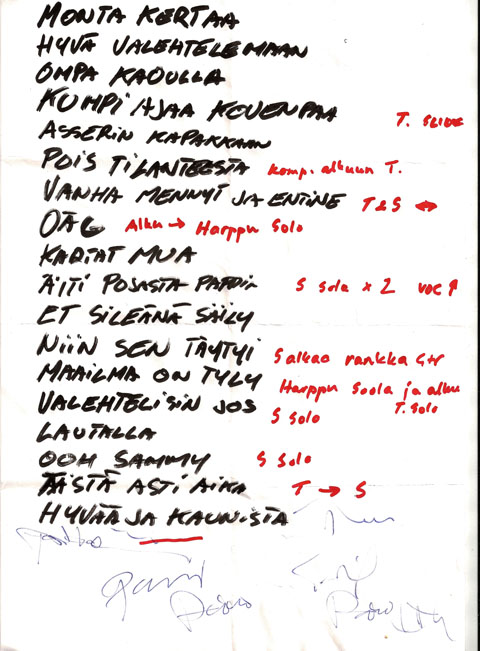 MONTA KERTAA
HYVÄ VALEHTELEMAAN
OMPA KADULLA
KUMPI AJAA KOVENPAA T. SLIDE
ASSERIN KAPAKKAAN
POIS TILANTEESTA komp. alkuun T.
VANHA MENNYT JA ENTINE T&S ↔
OAG Alku → Harppu Solo
KADTAT MUA
ÄITI POJASTA PAPPIA S solo x 2 voc ↑
ET SILEÄNÄ SÄILY
NIIN SEN TÄYTYI S alkaa rankka Gtr
MAAILMA ON TYLY Harppu Soola ja alku
VALEHTELISIN JOS S Solo T. Solo
LAUTALLA
OOH SAMMY S Solo
TÄSTÄ ASTI AIKA T → S
HYVÄÄ JA KAUNISTA